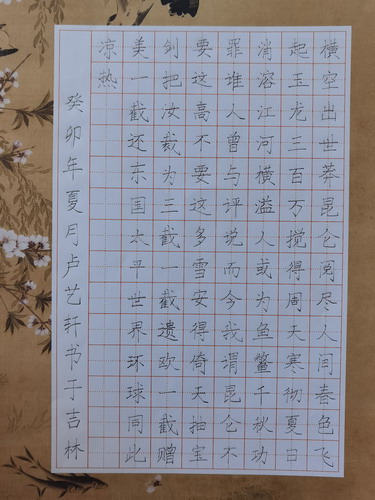 横空出世莽昆仑阅尽人间春色飞
起玉龙三百万搅得周天寒彻夏日
消溶江河横溢人或为鱼鳖千秋功
罪谁人曾与评说而今我谓昆仑不
要这高不要这多雪安得倚天抽宝
剑把汝裁为三截一截遗欧一截赠
美一截还东国太平世界环球同此
凉热
癸卯年夏月卢艺轩书于吉林